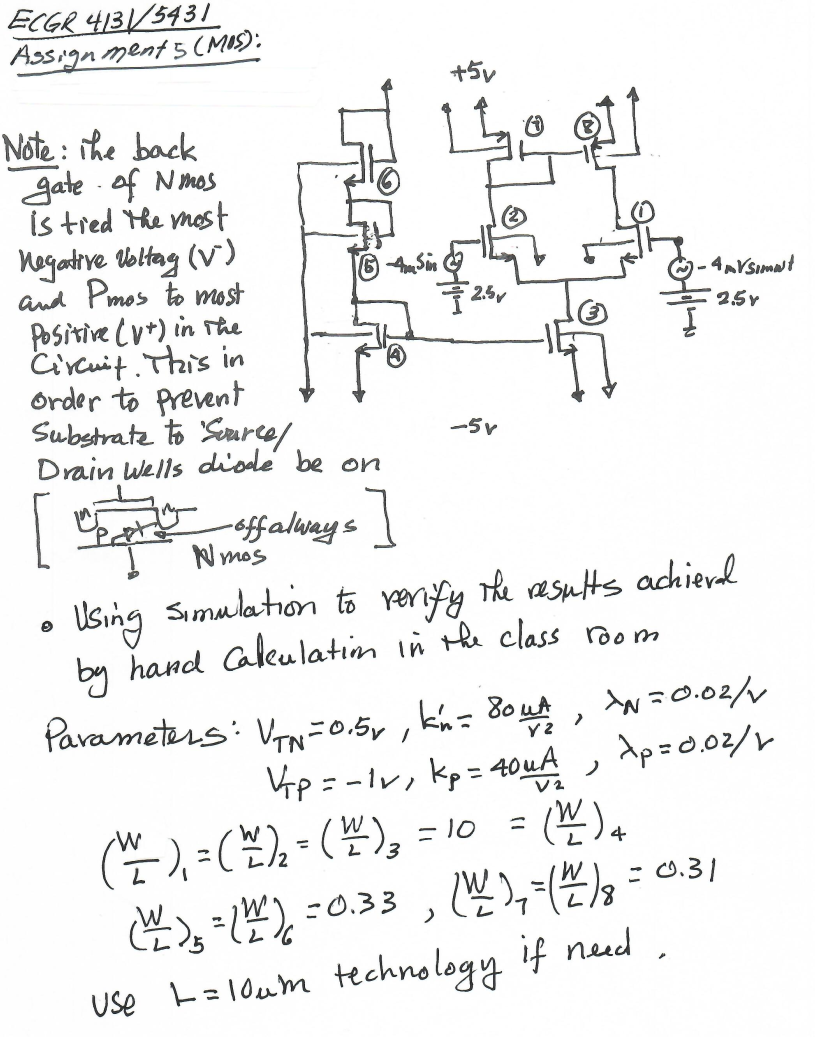 ECGR 4131/5431
Assignment 5 (MOS):
+5v
Note: The back
gate of Nmos
is tied the most
Negative Voltag (V-)
and Pmos to most
Positive (V+) in The
Circuit. This in
order to prevent
Substrate to Source/
Drain Wells diode be on
7
8
6
2
1
5
-4mSin
2.5v
-4mVsinwt
2.5v
3
4
-5v
n n
P
off always
Nmos
• Using simulation to verify the results achieved
by hand Calculation in the class room
Parameters: VTN = 0.5v, k'n = 80 uA/V2, λN = 0.02/v
VTP = -1v, kp = 40 uA/V2, λp = 0.02/v
(W/L)1 = (W/L)2 = (W/L)3 = 10 = (W/L)4
(W/L)5 = (W/L)6 = 0.33, (W/L)7 = (W/L)8 = 0.31
use L = 10um technology if need.